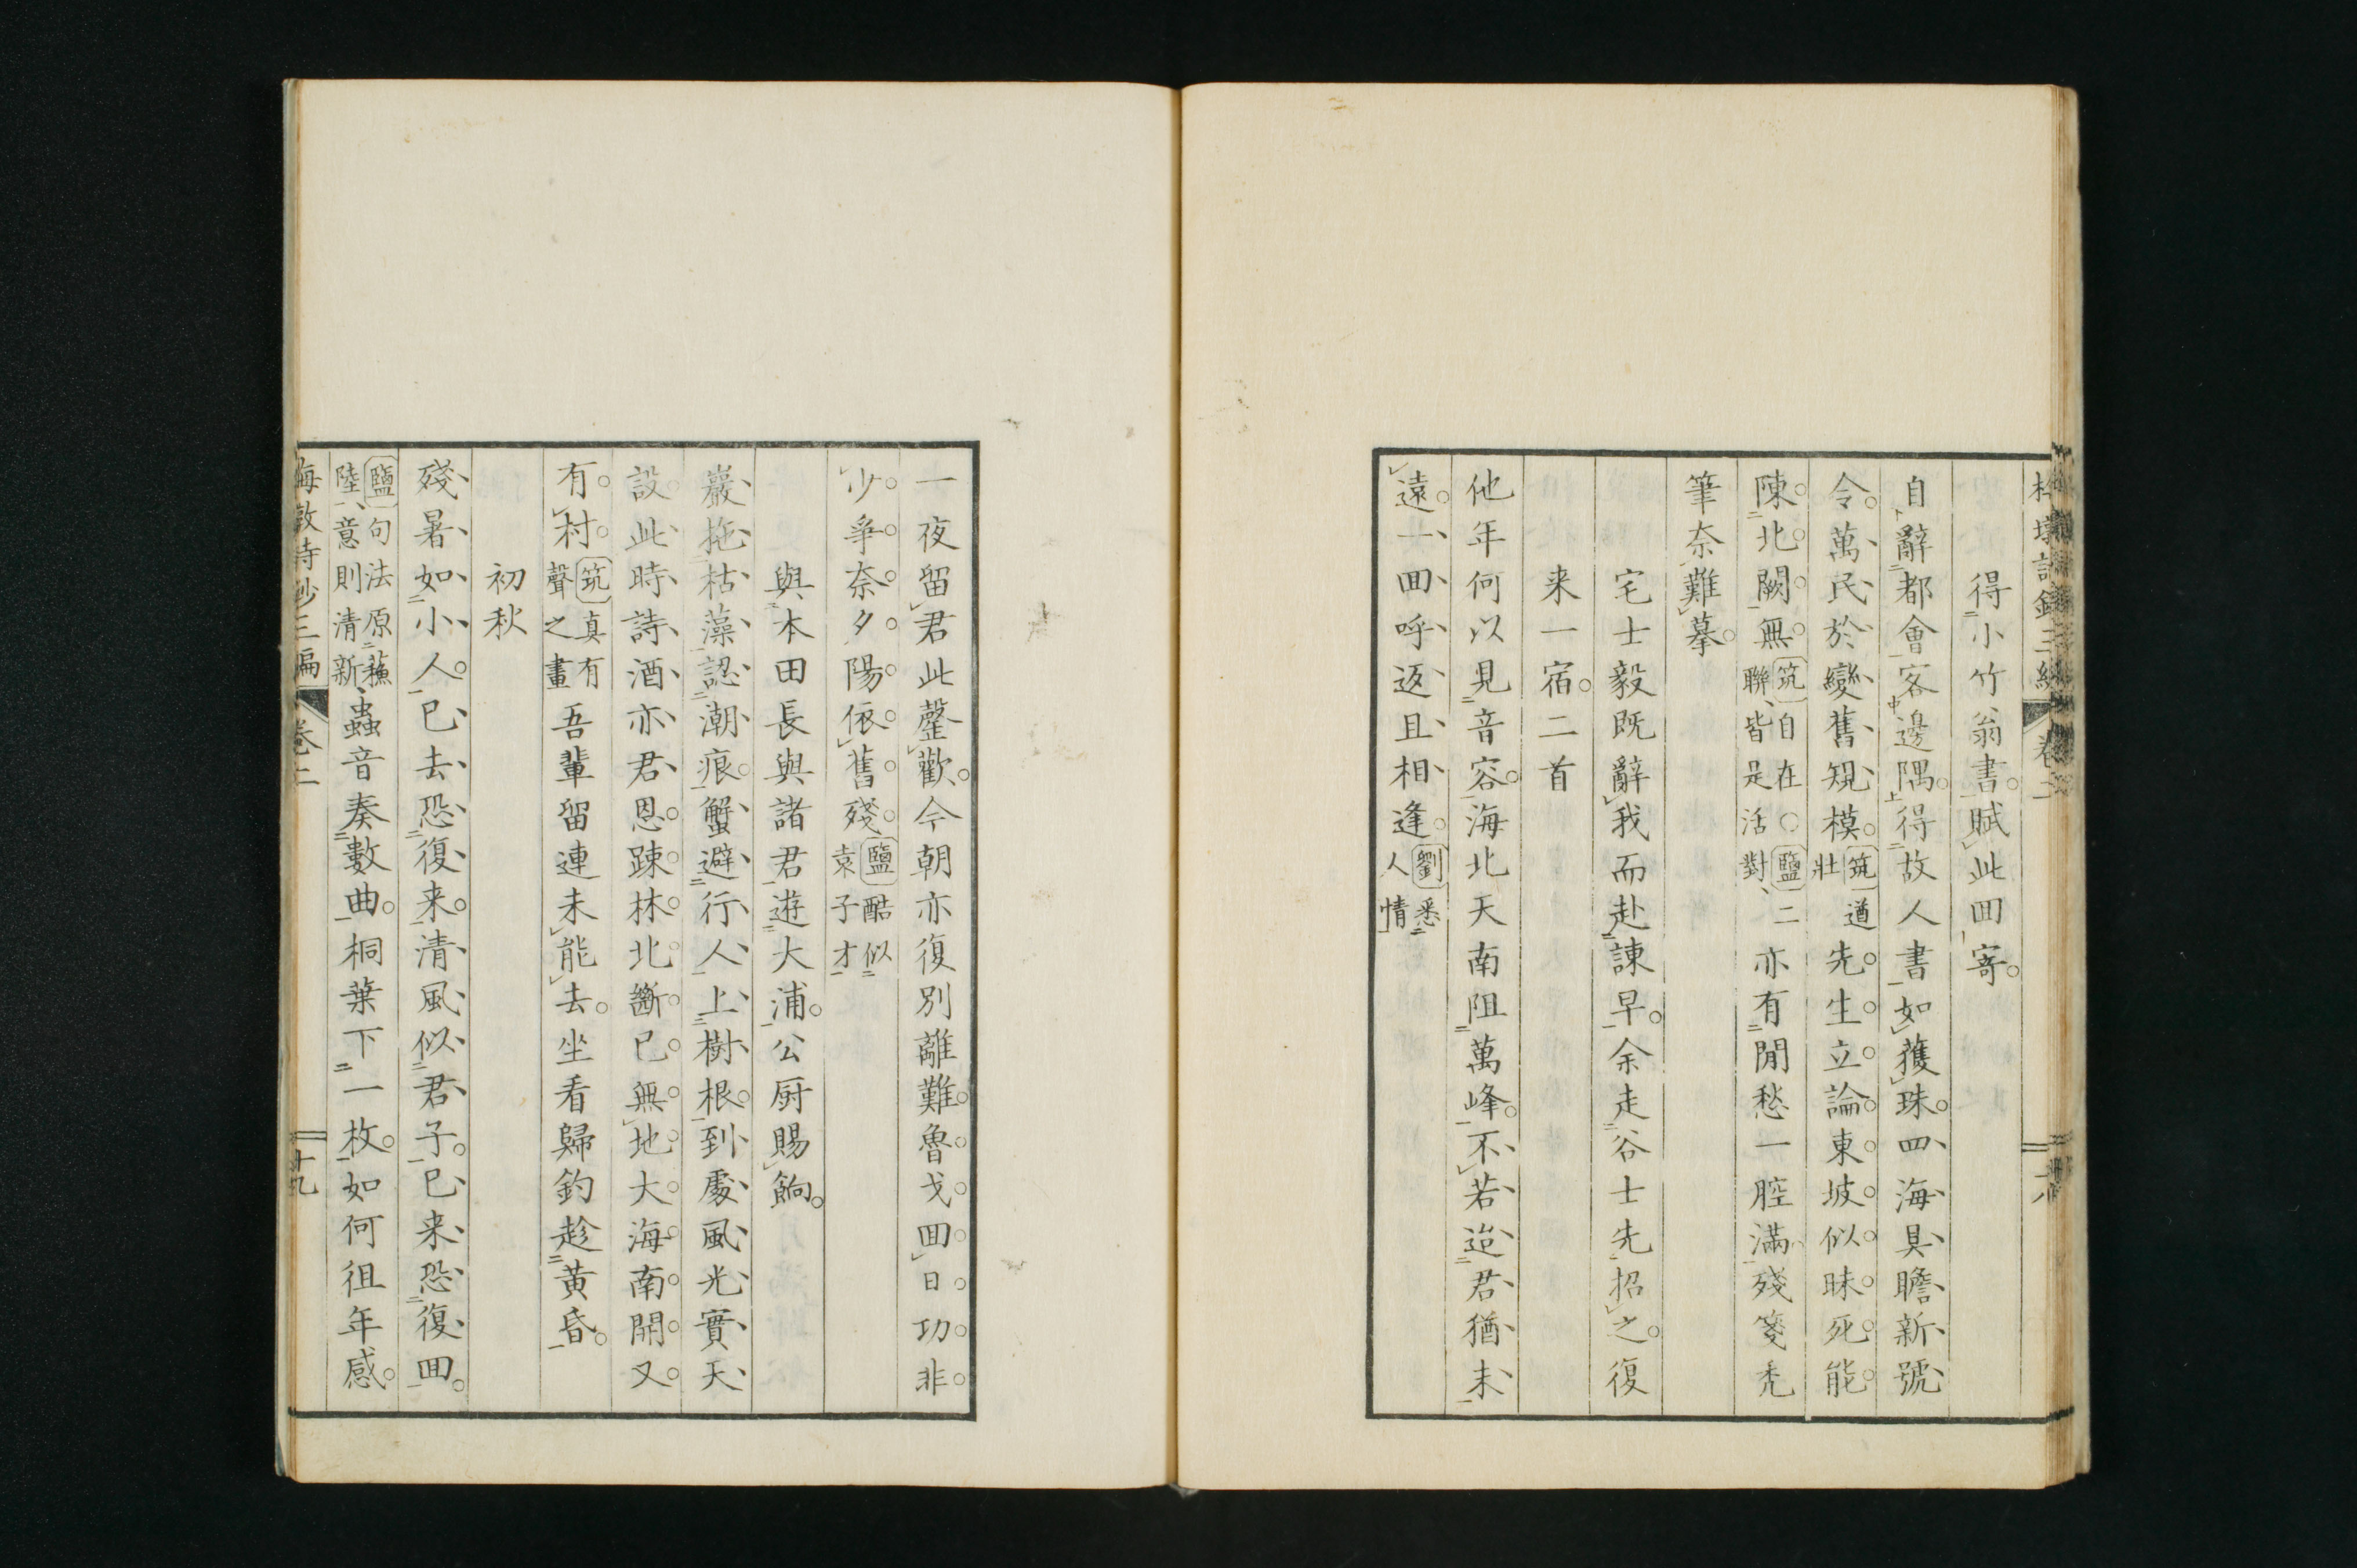 得小竹翁書賦此回寄
自辭都會客邊隅得故人書如獲珠四海具瞻新號
令萬民於變舊規模筑遒壯先生立論東坡似昧死能
陳北闕無筑自在○鹽二聯皆是活對亦有閒愁一腔滿殘箋禿
筆奈難摹
宅士毅既辭我而赴諫早余走谷士先招之復
来一宿二首
他年何以見音容海北天南阻萬峰不若迨君猶未
遠一回呼返且相逢劉悉人情
一夜留君此罄歡今朝亦復別離難魯戈回日功非
少爭奈夕陽依舊殘鹽酷似袁子才
與本田長與諸君遊大浦公厨賜餉
巖拖枯藻認潮痕蟹避行人上樹根到處風光實天
設此時詩酒亦君恩踈林北斷已無地大海南開又
有村筑真有聲之畫吾輩留連未能去坐看歸釣趁黄昏
初秋
殘暑如小人已去恐復来清風似君子已来恐復回
鹽句法原蘓陸意則清新蟲音奏數曲桐葉下一枚如何徂年感
梅墩詩鈔三編 卷二 十九